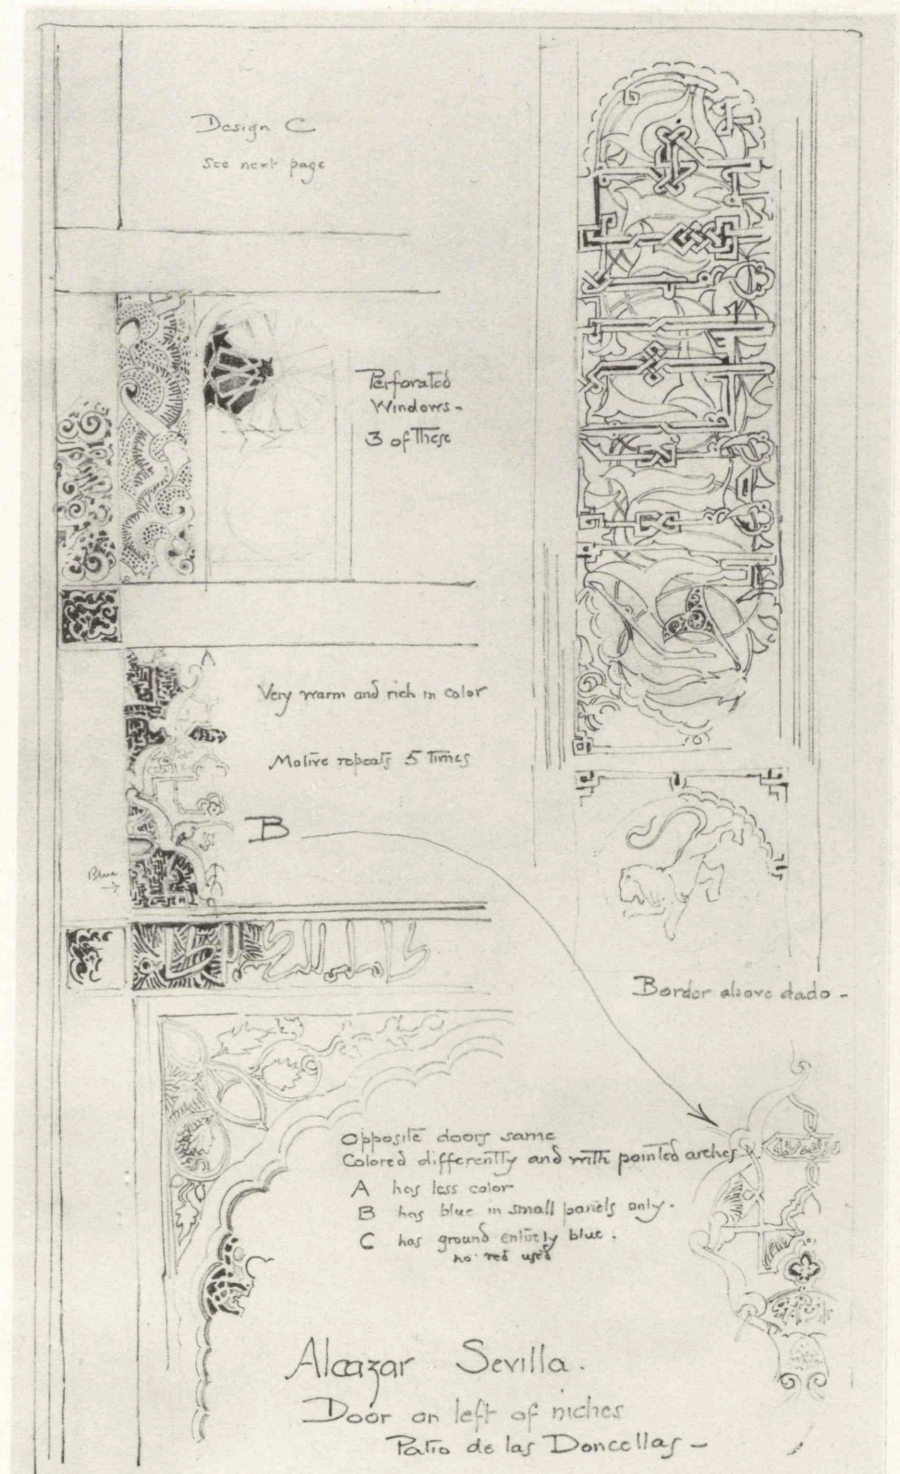 Design C
see next page
Perforated
Windows -
3 of These
Very warm and rich in color
Motive repeats 5 times
A
B
Blue
Border above dado -
Opposite doors same
Colored differently and with pointed arches
A has less color
B has blue in small panels only.
C has ground entirely blue.
no red used
Alcazar Sevilla.
Door on left of niches
Patio de las Doncellas -